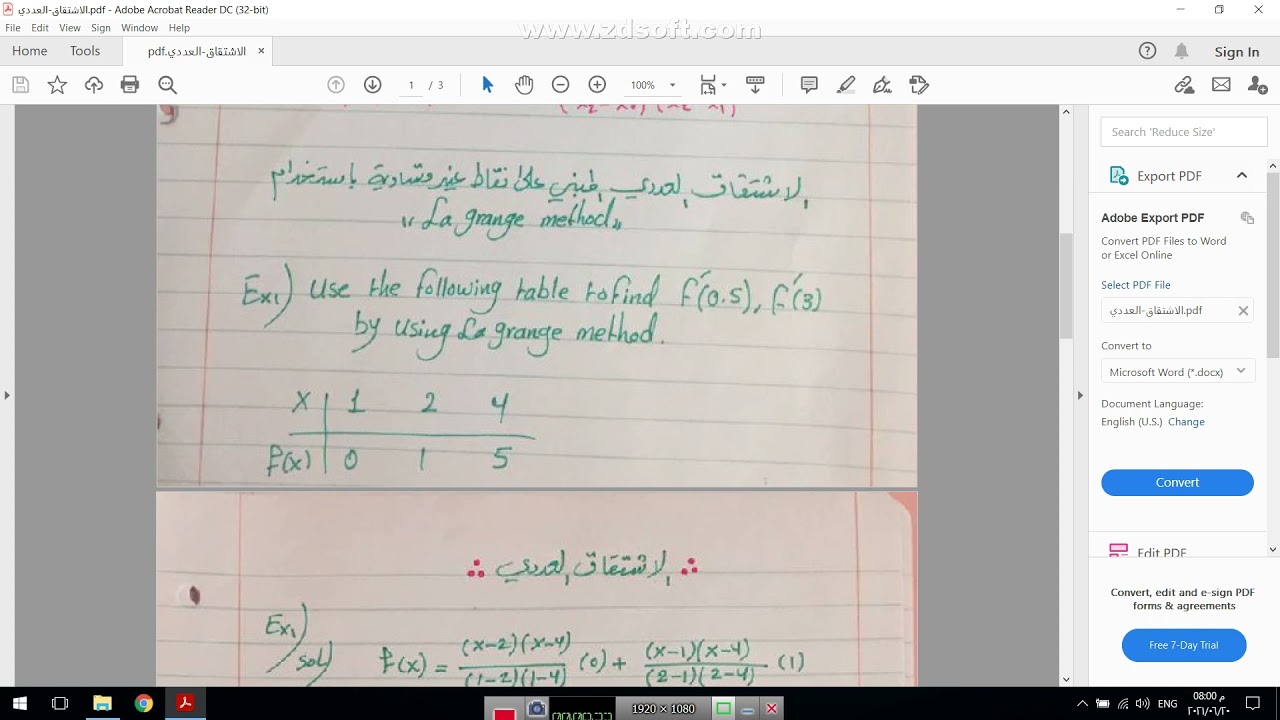 الاشتقاق-العددي.pdf - Adobe Acrobat Reader DC (32-bit)
www.zdsoft.com
File Edit View Sign Window Help
Home Tools الاشتقاق-العددي.pdf × Sign In
1 / 3 100%
الاشتقاق العددي المبني على نقاط غير متساوية باستخدام
"La grange method"
Ex1) Use the following table to find f'(0.5), f'(3)
by using La grange method.
X 1 2 4
f(x) 0 1 5
الاشتقاق العددي
Ex1)
sol) f(x) = (x-2)(x-4) / (1-2)(1-4) (0) + (x-1)(x-4) / (2-1)(2-4) (1)
Search 'Reduce Size'
Export PDF
Adobe Export PDF
Convert PDF Files to Word
or Excel Online
Select PDF File
الاشتقاق-العددي.pdf
Convert to
Microsoft Word (*.docx)
Document Language:
English (U.S.) Change
Convert
Edit PDF
Convert, edit and e-sign PDF
forms & agreements
Free 7-Day Trial
1920 × 1080
ENG
08:00 م